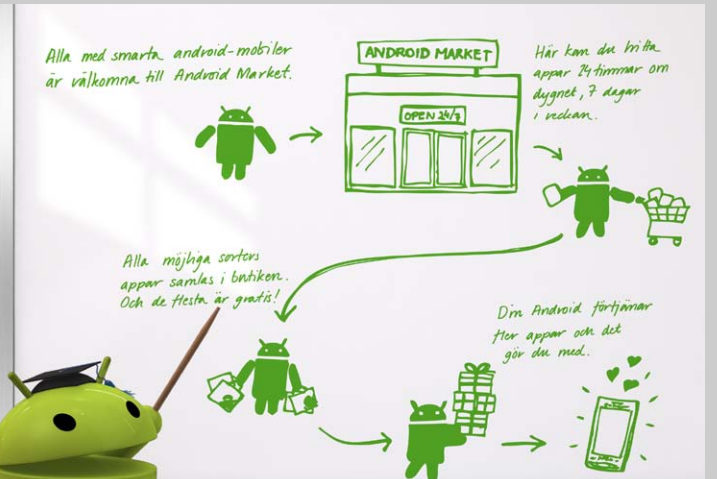 Alla med smarta android-mobiler
är välkomna till Android Market.
ANDROID MARKET
OPEN 24/7
Här kan du hitta
appar 24 timmar om
dygnet, 7 dagar
i veckan.
Alla möjliga sorters
appar samlas i butiken.
Och de flesta är gratis!
Din Android förtjänar
fler appar och det
gör du med.